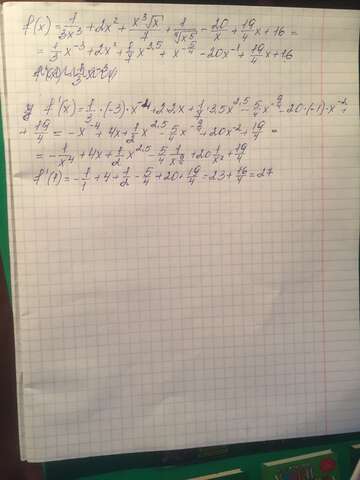 f(x) = 1/(3x³) + 2x² + x³√x/7 + 1/⁴√x⁵ − 20/x + 19/4 x + 16 =
= 1/3 x⁻³ + 2x² + 1/7 x^2,5 + x^(−5/4) − 20x⁻¹ + 19/4 x + 16
y f'(x) = 1/3 · (−3) · x⁻⁴ + 2·2x + 1/7 · 3,5x^2,5 − 5/4 x^(−9/4) − 20·(−1)·x⁻² +
+ 19/4 = −x⁻⁴ + 4x + 1/2 x^2,5 − 5/4 x^(−9/4) + 20x⁻² + 19/4 =
= −1/x⁴ + 4x + 1/2 x^2,5 − 5/4 1/x^(9/4) + 20 1/x² + 19/4
f'(1) = −1/1 + 4 + 1/2 − 5/4 + 20 + 19/4 = 23 + 16/4 = 27